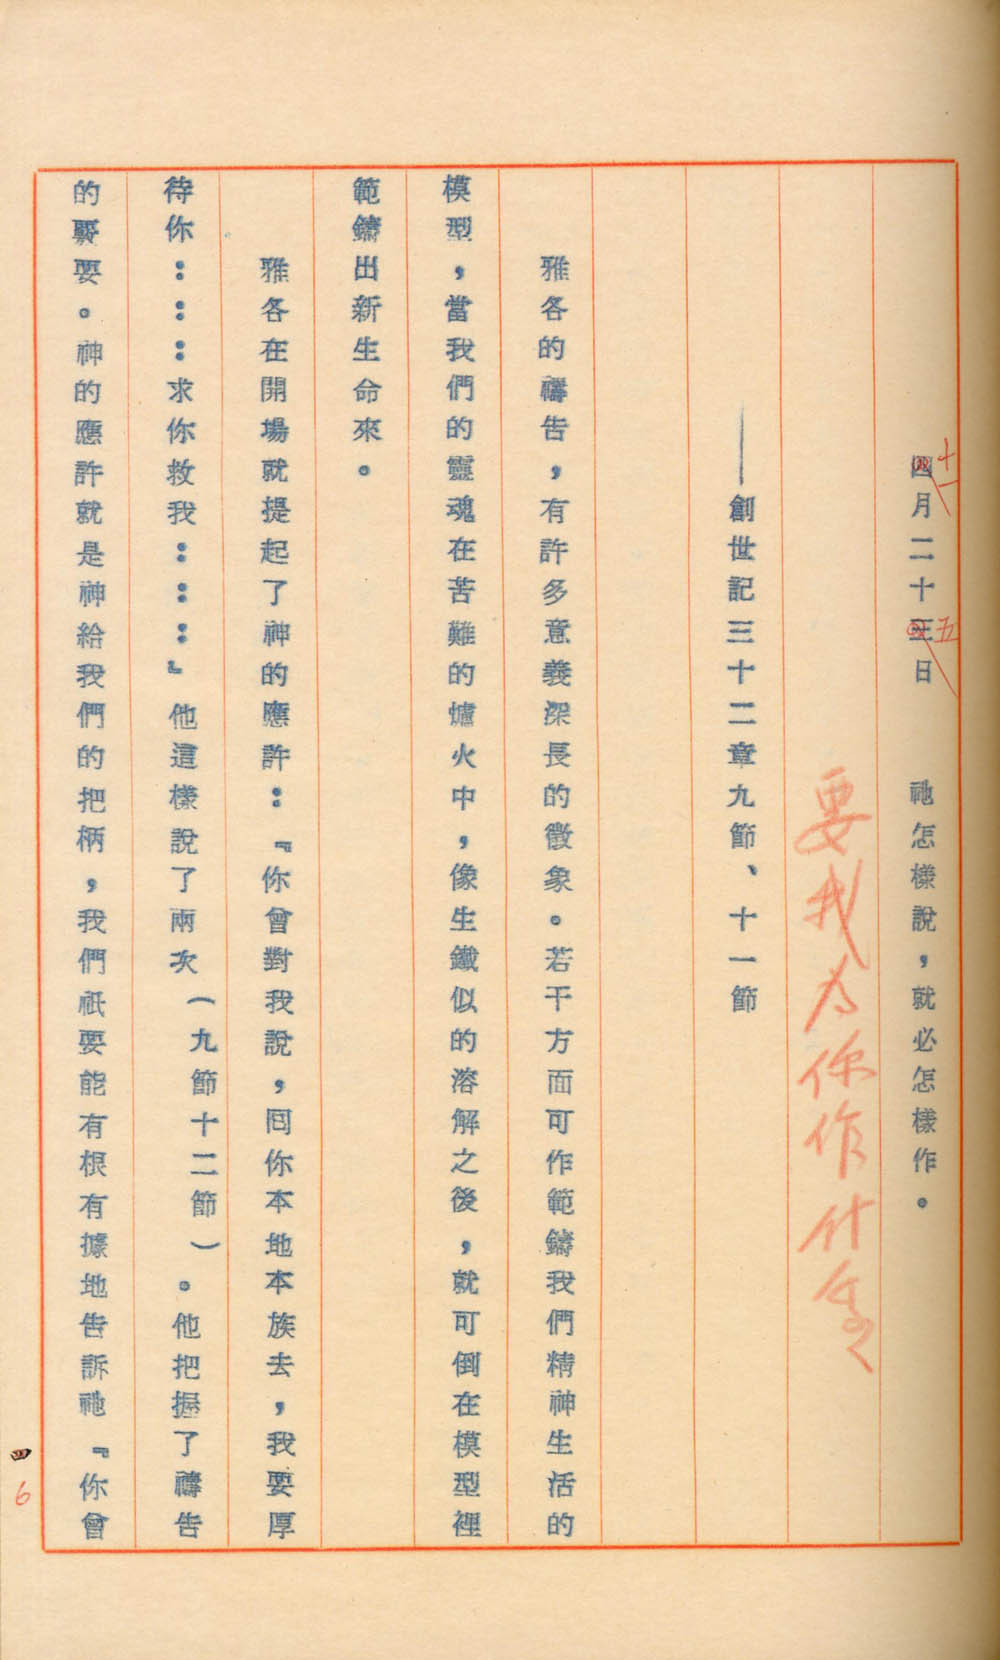 四月二十三日　祂怎樣說，就必怎樣作。
十一
五
要我为你作什么
——創世記三十二章九節、十一節
雅各的禱告，有許多意義深長的徵象。若干方面可作範鑄我們精神生活的
模型，當我們的靈魂在苦難的爐火中，像生鐵似的溶解之後，就可倒在模型裡
範鑄出新生命來。
雅各在開場就提起了神的應許：『你曾對我說，囘你本地本族去，我要厚
待你：：：求你救我：：：』他這樣說了兩次（九節十二節）。他把握了禱告
的要。神的應許就是神給我們的把柄，我們祇要能有根有據地告訴祂『你曾
6